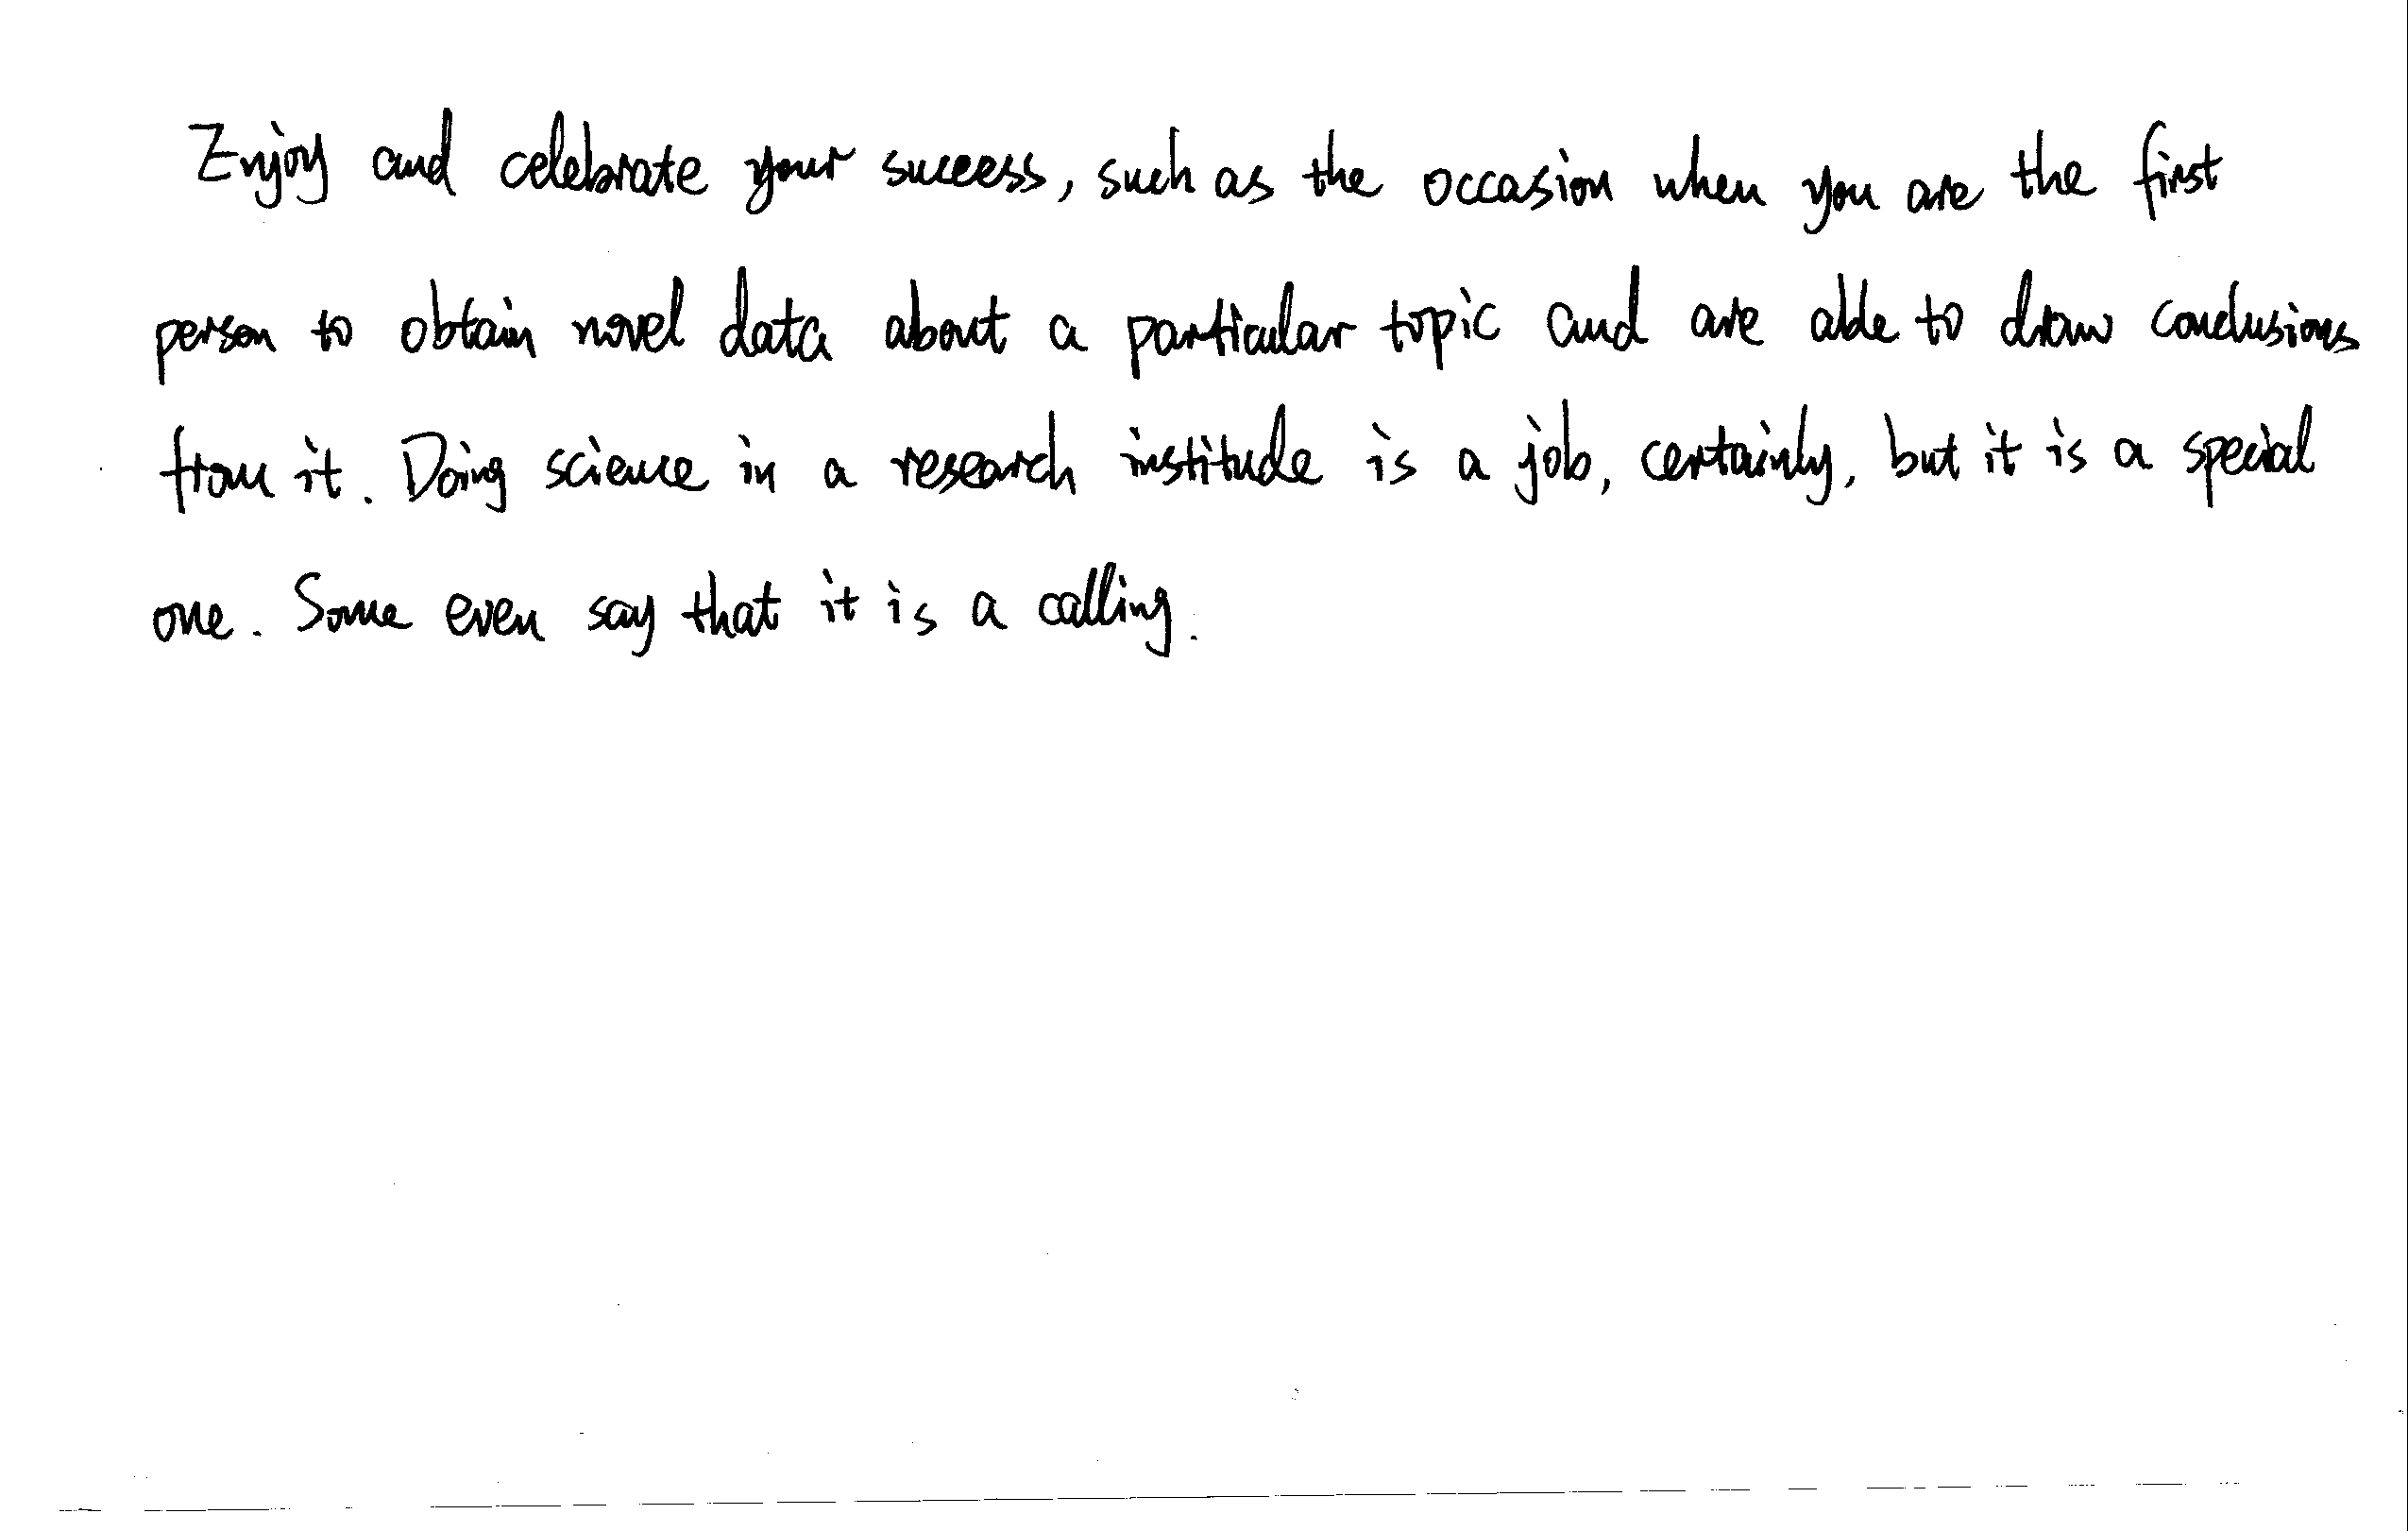 Enjoy and celebrate your success, such as the occasion when you are the first
person to obtain novel data about a particular topic and are able to draw conclusions
from it. Doing science in a research institude is a job, certainly, but it is a special
one. Some even say that it is a calling.